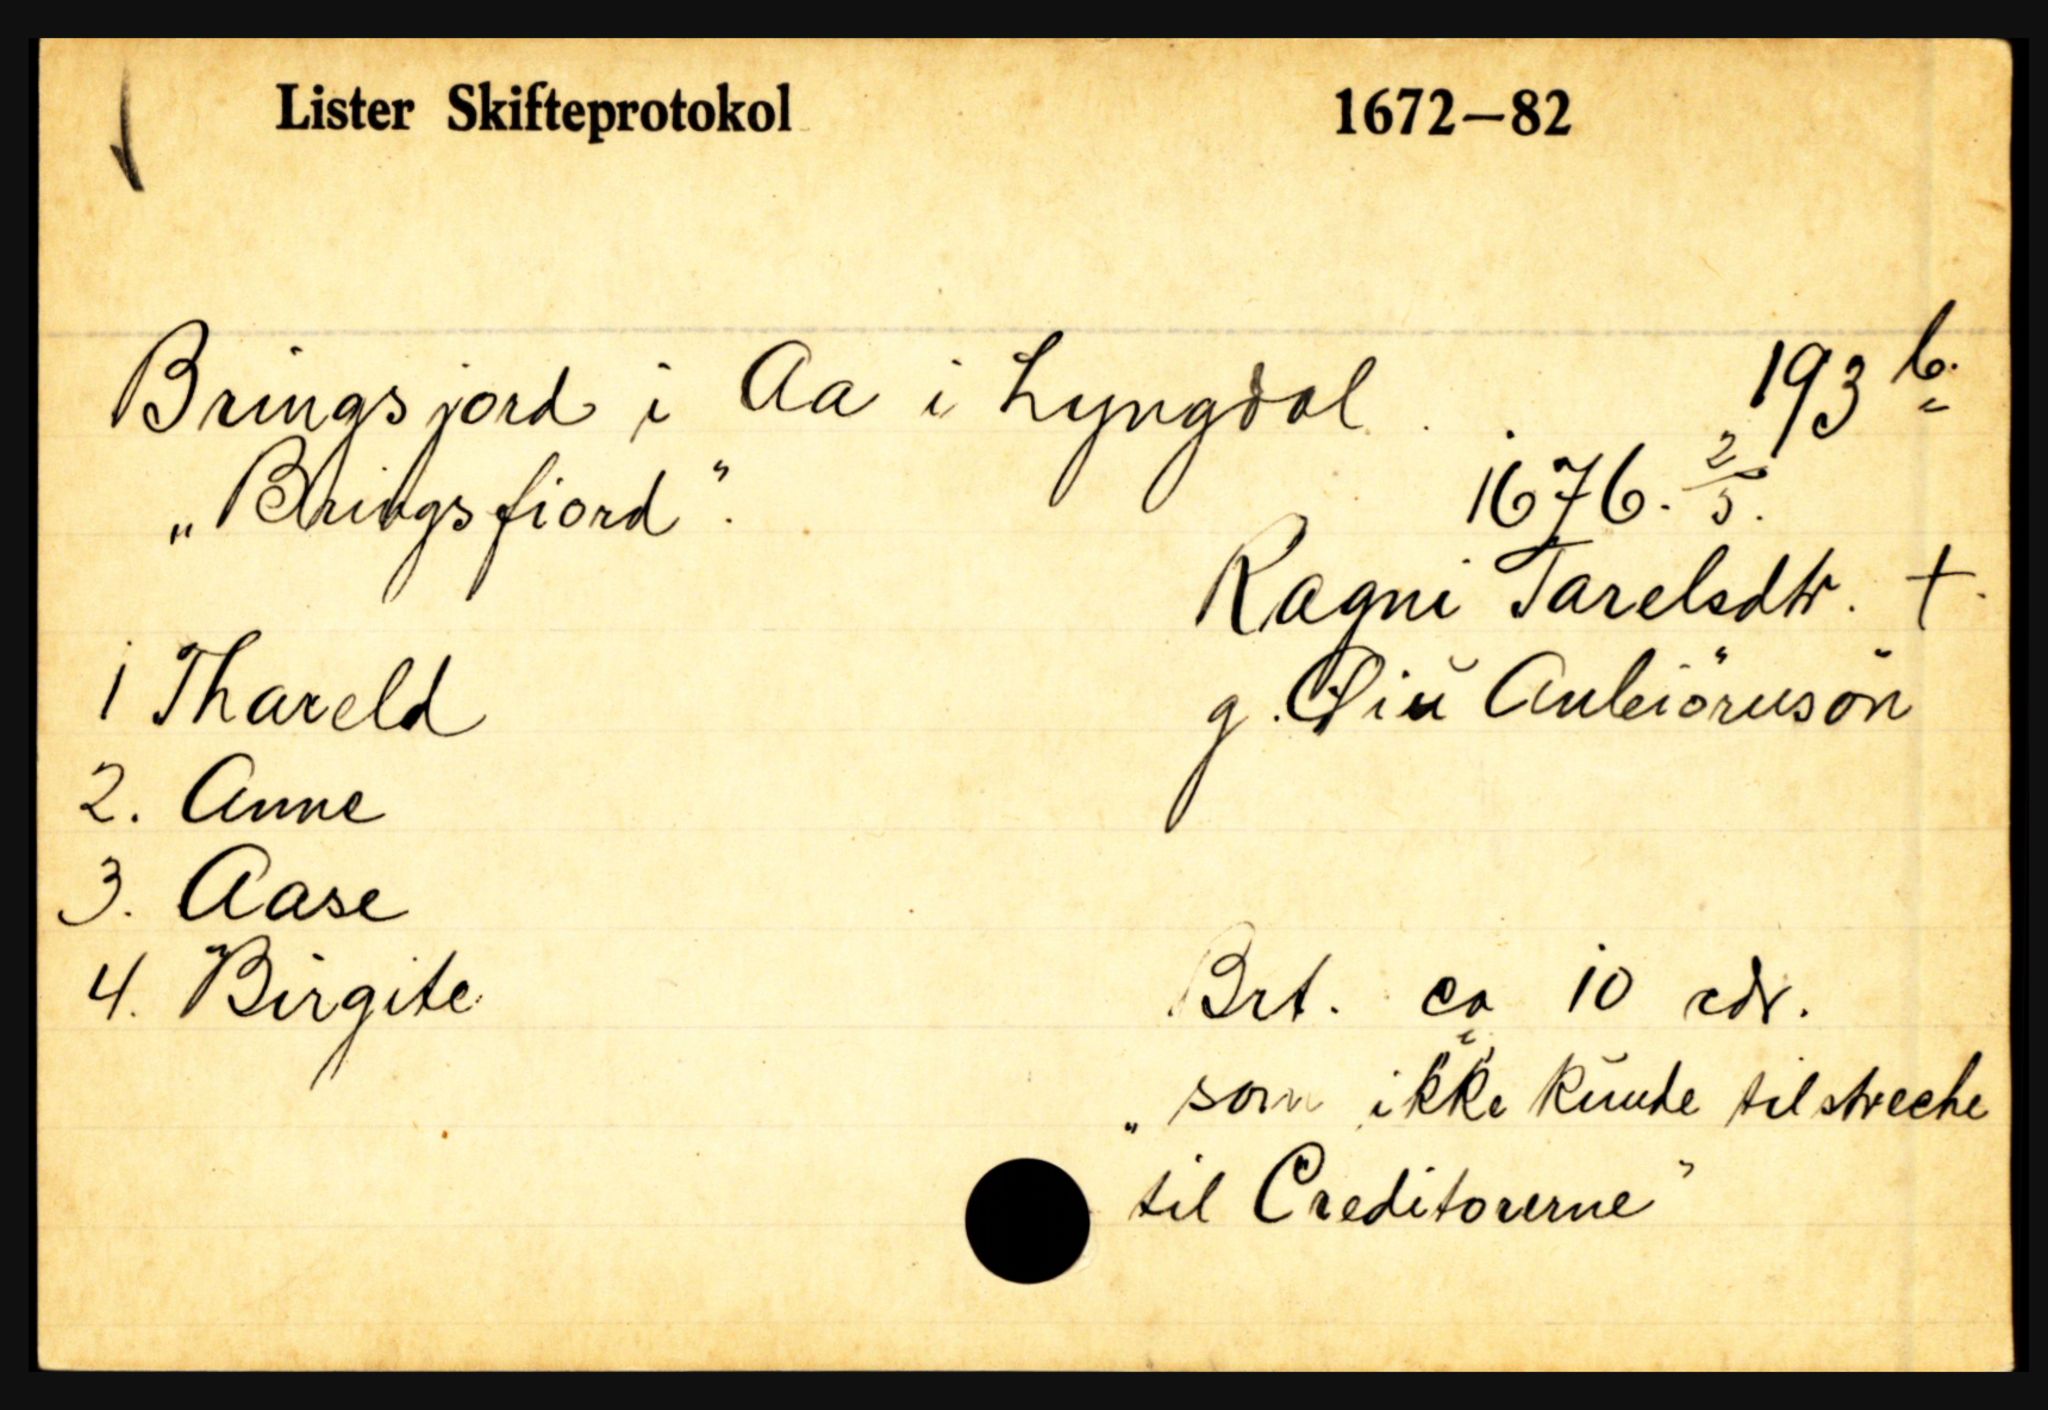 Lister Skifteprotokol 1672–82
Bringsjord i Aa i Lyngdal. 193 b.
„Bringsfiord". 1676. 2/5.
Ragni Tarelsdtr. +.
1 Thareld
g. Anbiörnsön
2. Anne
3. Aase
4. Birgite
Brt. ca 10 rdr.
„som ikke kunde tilstreche
til Creditorerne"